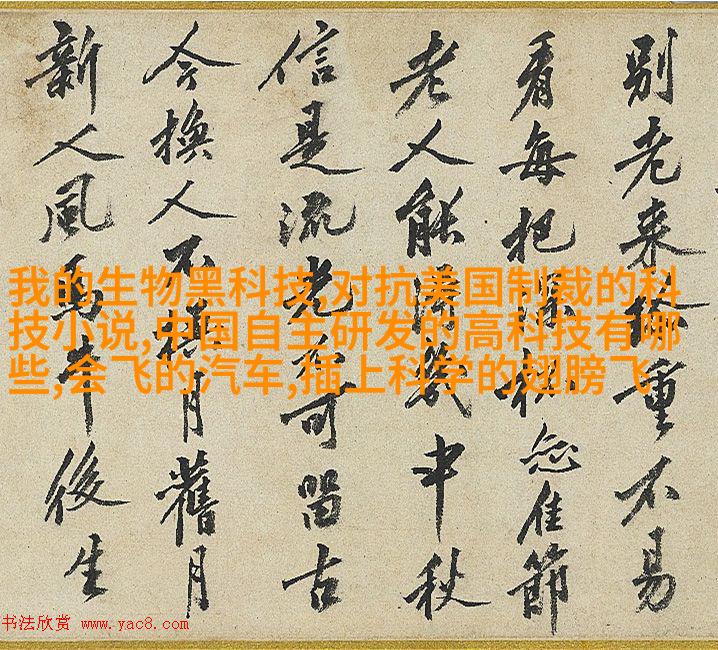 別老来重不易
看每把深杯佳節
老人能幾中秋
信是流光不可留古
今換人不換月舊月
新人風馬牛後生
我的生物黑科技,对抗美国制裁的科
技小说,中国自主研发的高科技有哪
些,会飞的汽车,插上科学的翅膀飞
书法欣赏 www.yac8.com